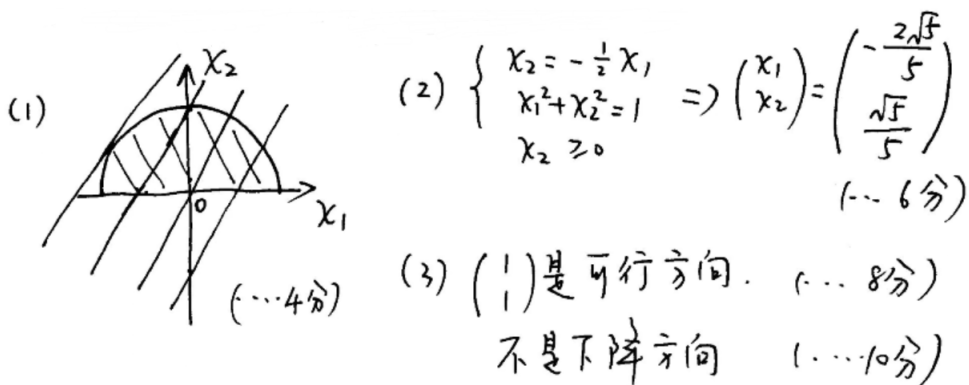 (1)
x₂
0
x₁
(…4分)
(2) { x₂ = -½ x₁
x₁² + x₂² = 1
x₂ ≥ 0
⇒ (x₁ x₂) = (-2√5/5 √5/5)
(… 6分)
(3) (1 1) 是可行方向. (… 8分)
不是下降方向 (……10分)